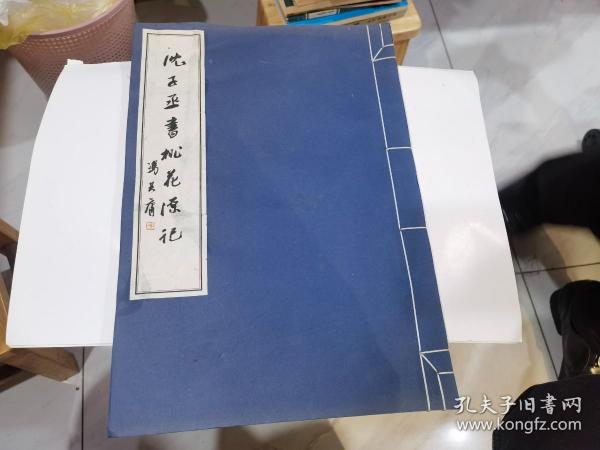 沈子丞書桃花源记
冯其庸
孔夫子旧書网
www.kongfz.com